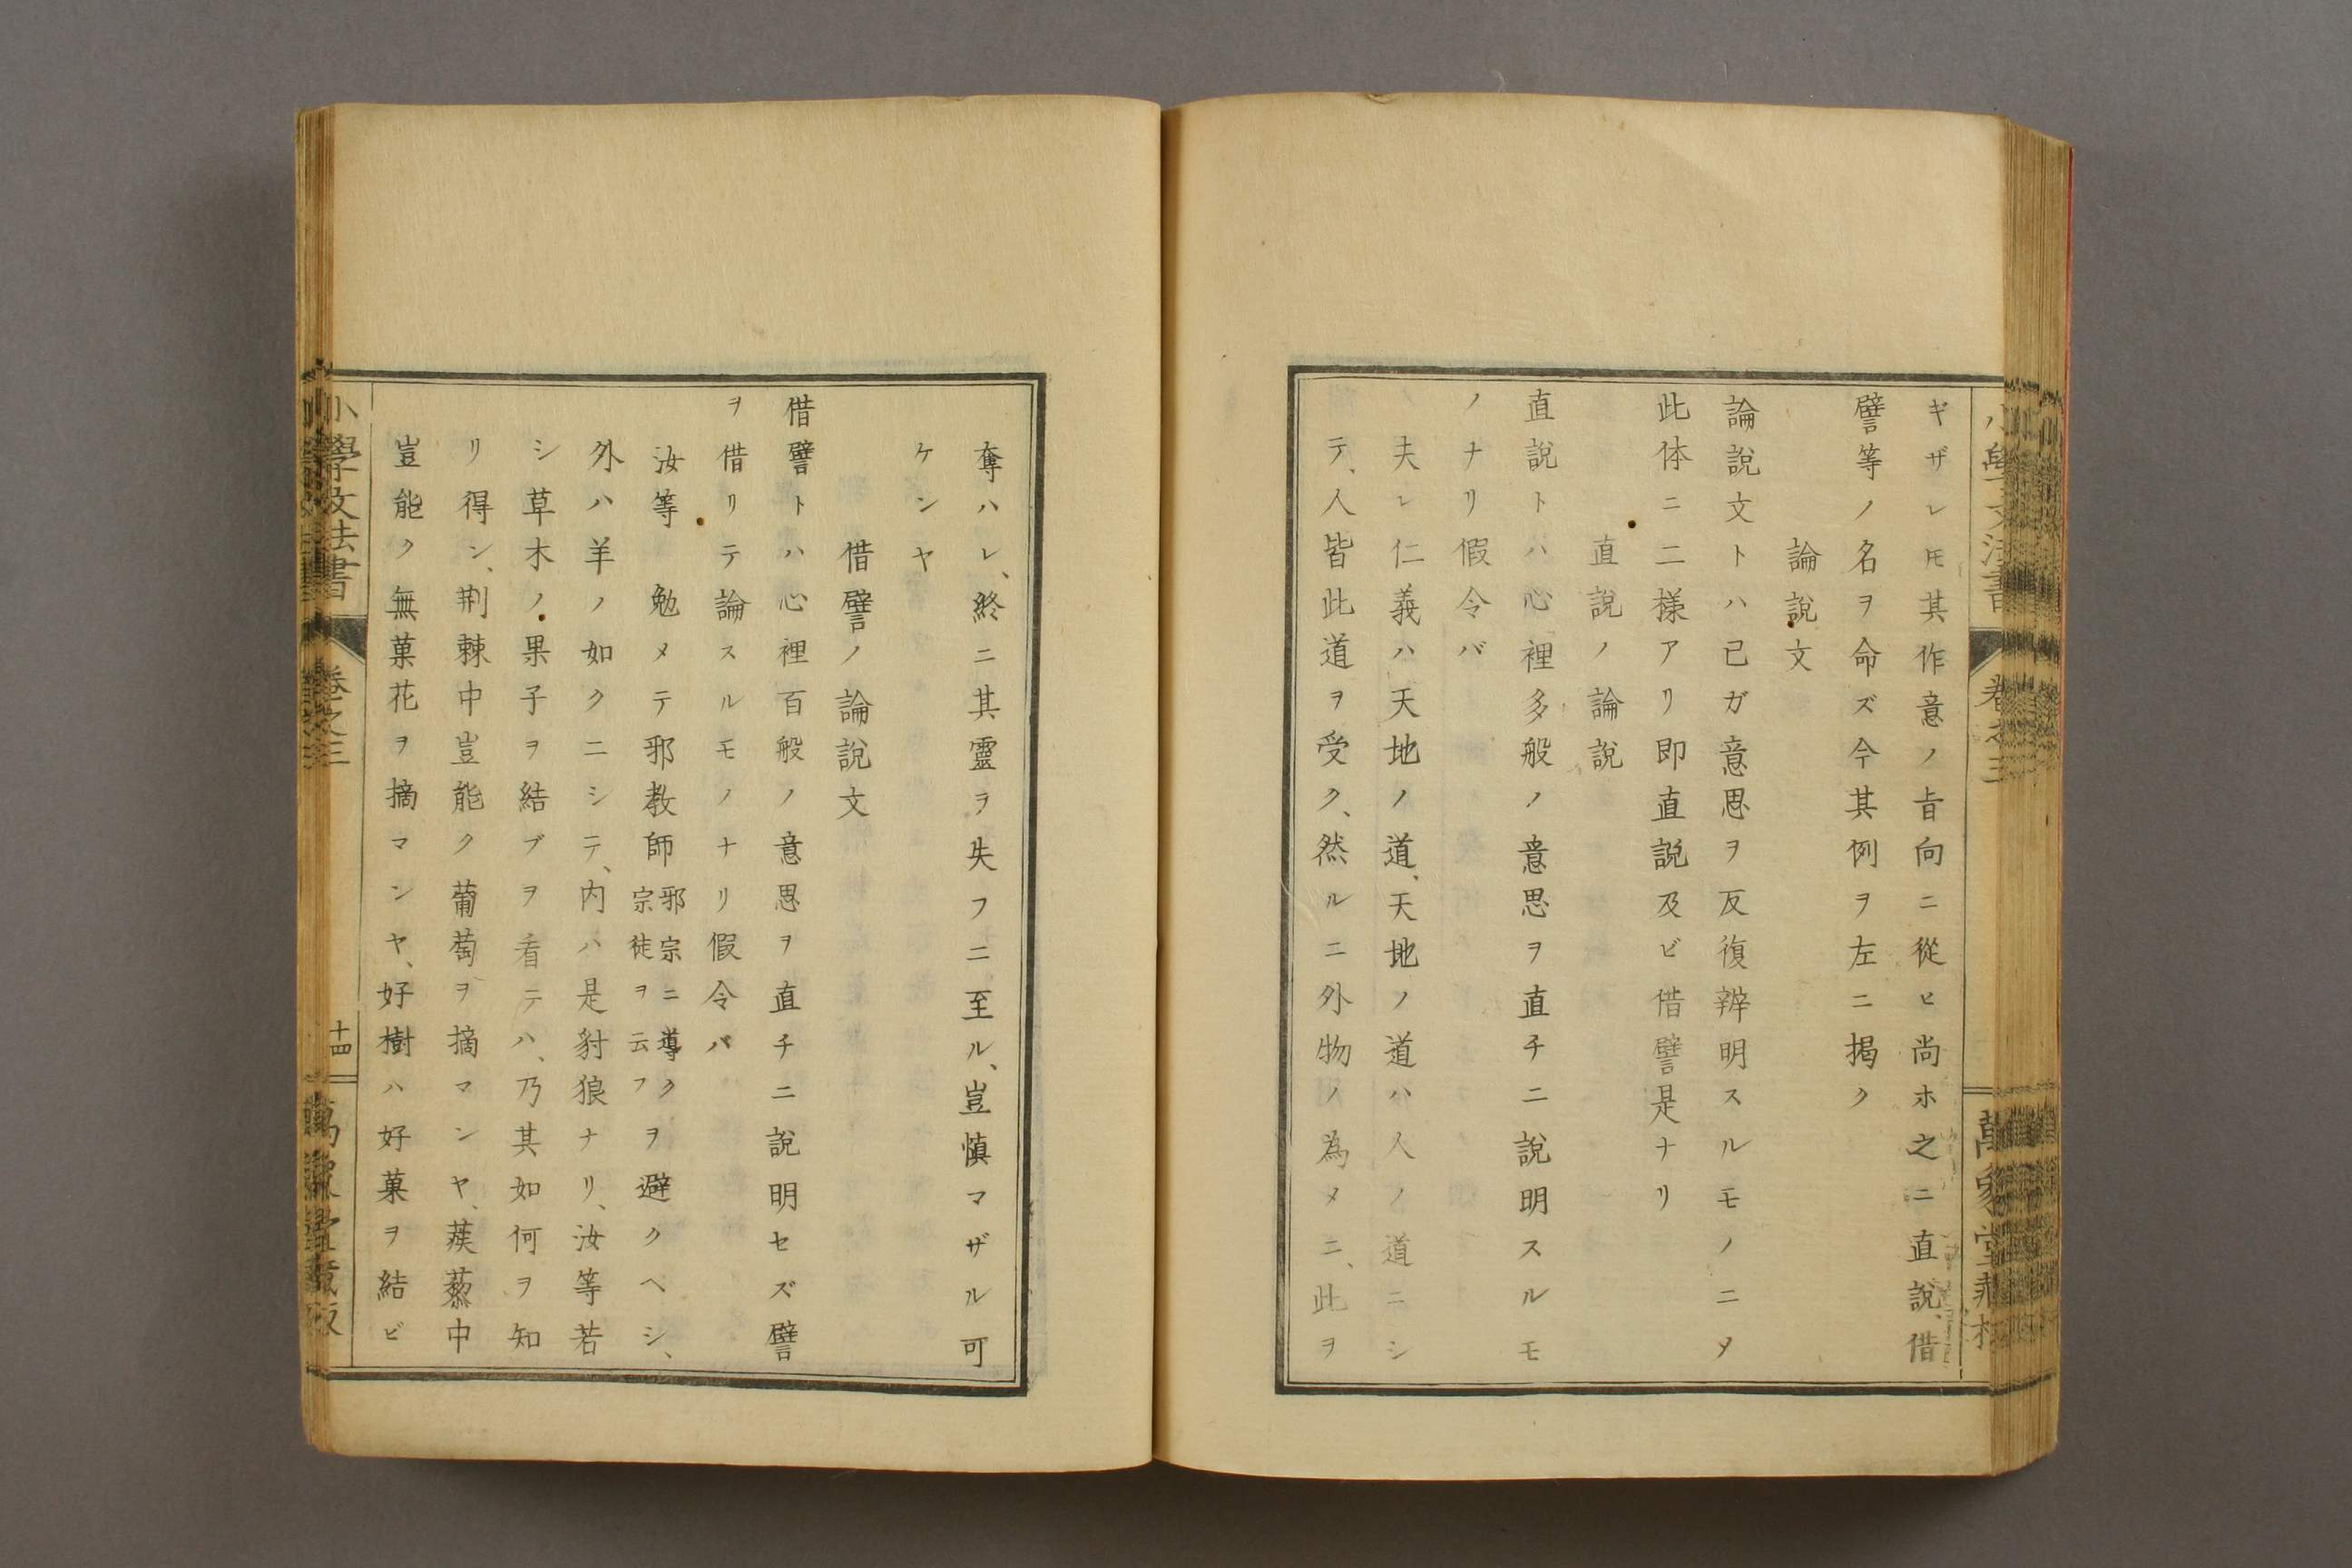 ギザレ𪜈其作意ノ㫖向ニ從ヒ尚ホ之ニ直說、借
譬等ノ名ヲ命ズ今其例ヲ左ニ掲ク
論說文
論說文トハ已ガ意思ヲ反復辨明スルモノニメ
此体ニ二様アリ即直説及ビ借譬是ナリ
直說ノ論說
直說トハ心裡多般ノ意思ヲ直チニ說明スルモ
ノナリ假令バ
夫レ仁義ハ天地ノ道、天地ノ道ハ人ノ道ニシ
テ、人皆此道ヲ受ク、然ルニ外物ノ為メニ、此ヲ
奪ハレ、終ニ其靈ヲ失フニ至ル、豈慎マザル可
ケンヤ
借譬ノ論說文
借譬トハ心裡百般ノ意思ヲ直チニ說明セズ譬
ヲ借リテ論スルモノナリ假令バ
汝等勉メテ邪教師邪宗ニ導クヲ避クヘシ、
宗徒ヲ云フ
外ハ羊ノ如クニシテ、内ハ是豺狼ナリ、汝等若
シ草木ノ果子ヲ結ブヲ看テハ、乃其如何ヲ知
リ得ン、荆棘中豈能ク葡萄ヲ摘マンヤ、蒺藜中
豈能ク無菓花ヲ摘マンヤ、好樹ハ好菓ヲ結ビ
小學文法書
卷之三
十四